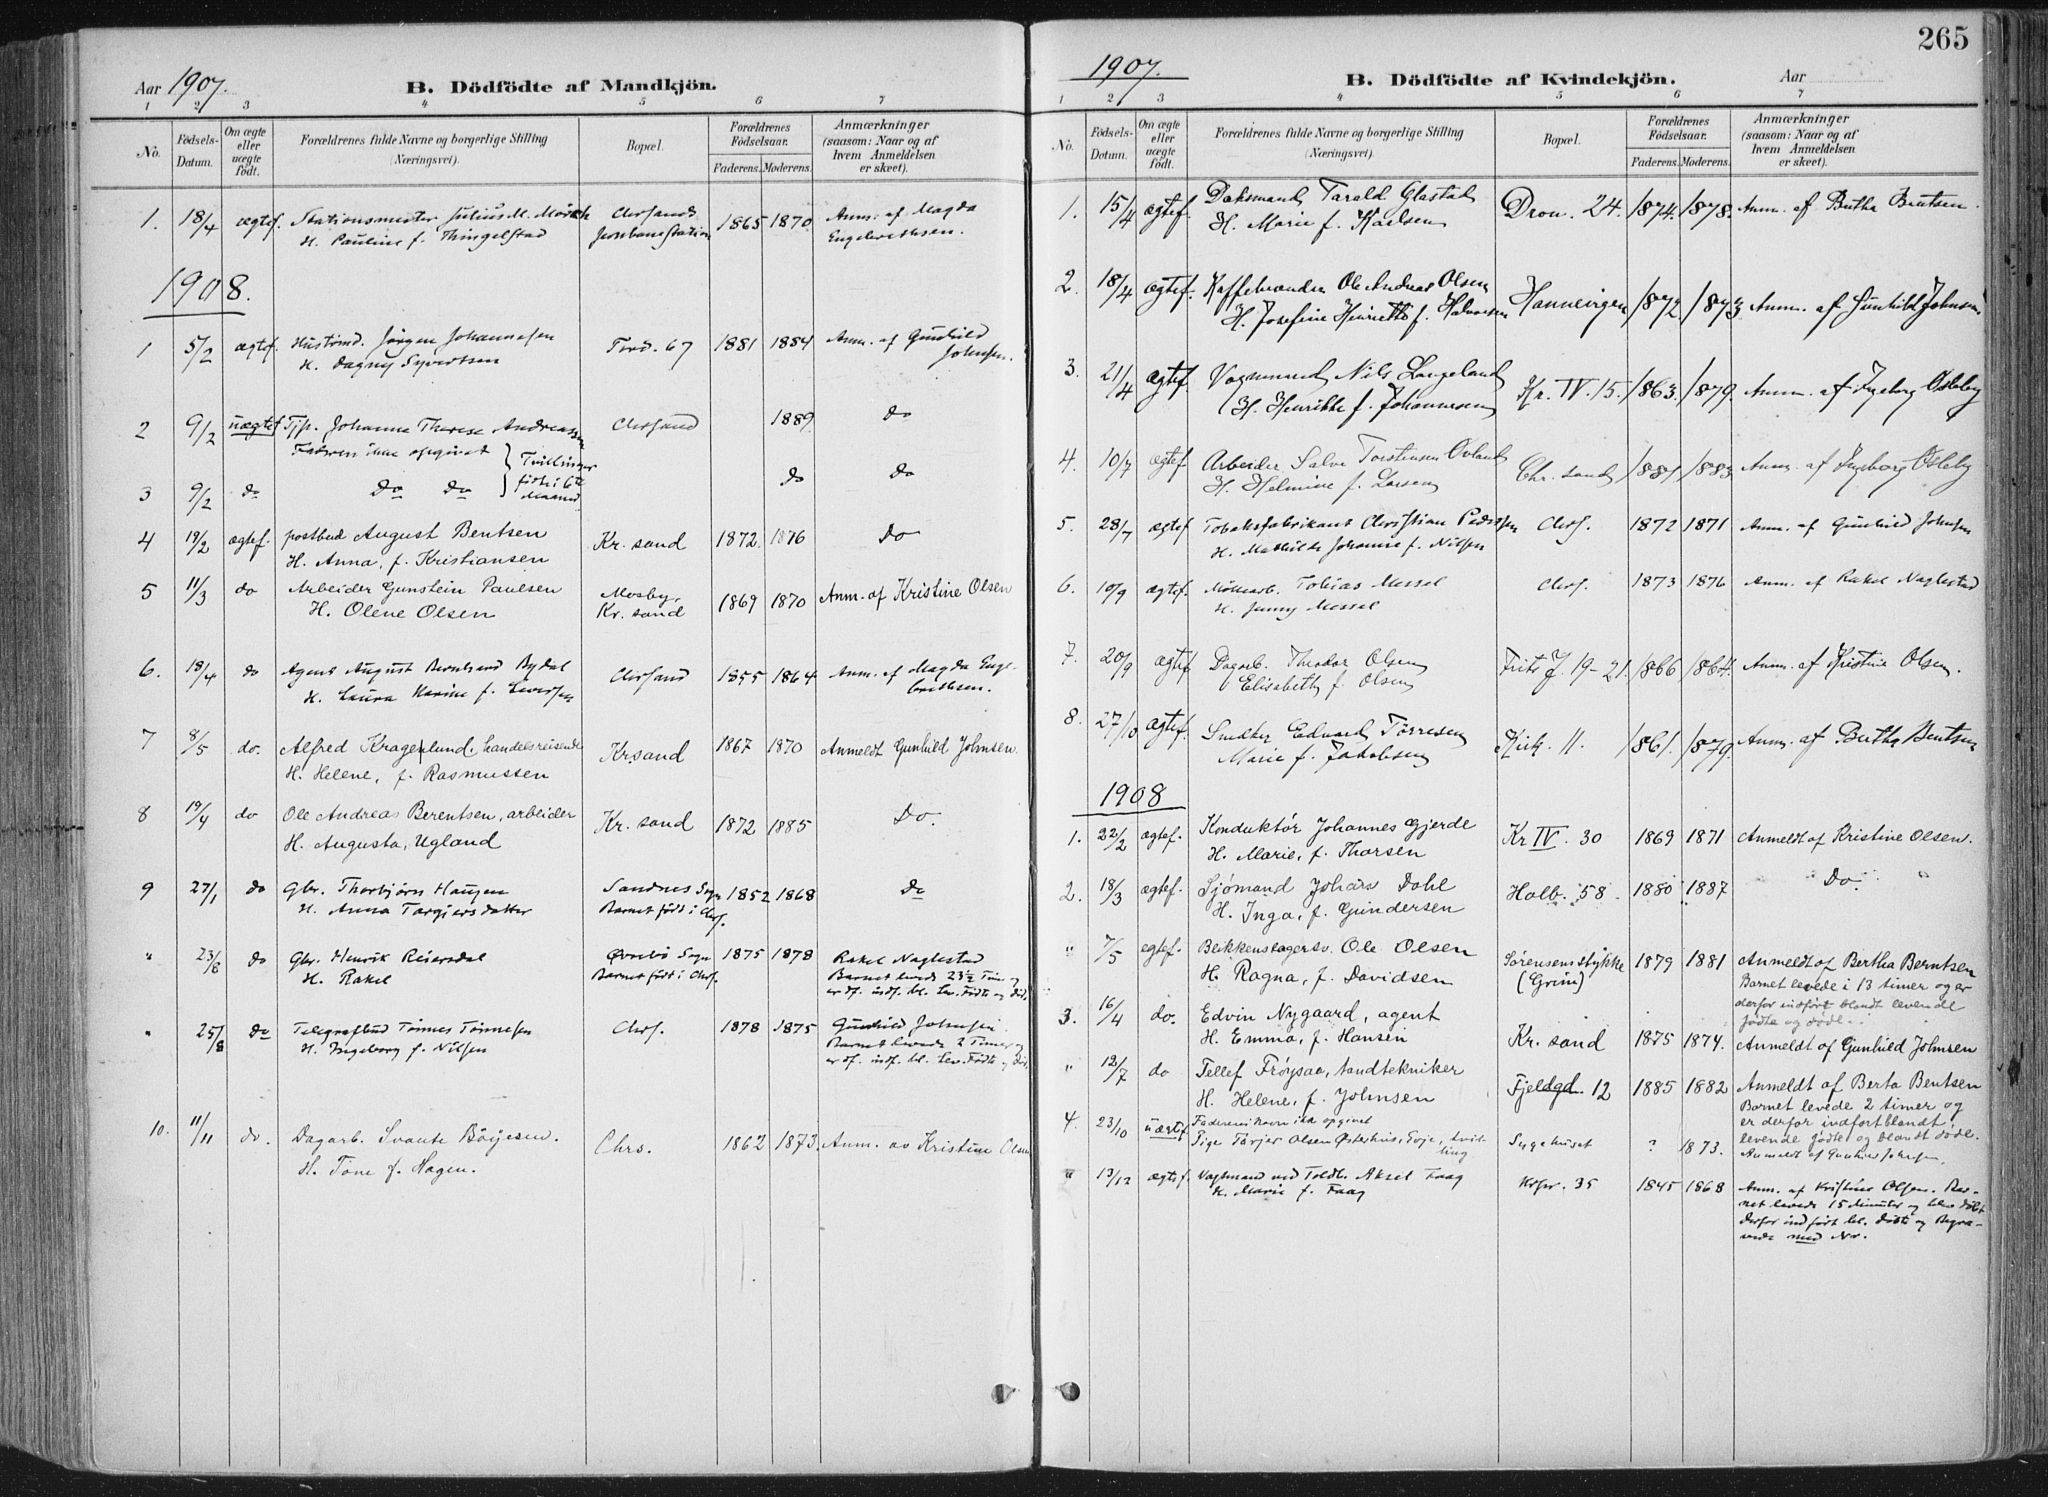 265
Aar 1907.
B. Dödfödte af Mandkjön.
1 2 3 4 5 6 7
No.
Födsels-Datum.
Om ægte eller uægte födt.
Forældrenes fulde Navne og borgerlige Stilling (Næringsvei).
Bopæl.
Forældrenes Födselsaar.
Faderens. Moderens.
Anmærkninger (saasom: Naar og af hvem Anmeldelsen er skeet).
1. 18/4 ægtef. Stationsmester Julius M. Mörch Chrsands 1865 1870 Anm. af Magda
H. Pauline f. Thingelstad Jernbanestation Engebrethsen.
1908.
1 5/2 ægtef. Jörgen Johannesen Tord. 67 1881 1884 Anm. af Gunhild
H. Dagny Syvertsen Johnsen.
2 9/2 uægtef Tjp. Johanna Therese Andreassen Chrsand 1889 Do
Faderen ikke opgivet } Tvillinger
3 9/2 do Do Do født i 6te Maaned do Do
4 19/2 ægtef. postbud August Bentsen Kr. sand 1872. 1876 Do
H. Anna, f. Kristiansen
5 11/3 do Arbeider Gunstein Paulsen Mosby, 1869 1870 Anm. af Kristine Olsen
H. Olene Olsen Kr. sand
6. 18/4 do Agent August Bernhard Rydal Chrsand 1855 1864 Anm. af Magda Enge-
H. Laura Karine f. brethsen.
7 8/5 do. Alfred Kragenlund, handelsreisende Kr.sand 1867 1870 Anmeldt Gunhild Johnsen.
H. Helene, f. Rasmussen
8 19/4 do Ole Andreas Berentsen, arbeider Kr. sand 1872 1885 Do.
H. Augusta, Ugland
9 27/1 do Gbr. Thorbjørn Haugen Sandnes Sogn 1852 1868 Do
H. Anna Targiersdatter Barnet født i Chrs.
" 23/8 do Gbr. Henrik Reiersdal Øvrebø Sogn 1875 1878 Rakel Naglestad
H. Rakel Barnet født i Chrs. Barnet levede 23½ Time og
er df. indf. bl. Lev. Fødte og Død.
" 25/8 do Telegrafbud Tönnes Tönnesen Chrs. 1878 1875 Gunhild Johnsen.
H. Ingeborg f. Nilsen Barnet levede 2 Timer og
er df. indf. bl. Lev. Fødte og Død.
10. 11/11 do. Dagarb. Svante Böyesen. Chrs. 1862 1873. Anm. av Kristine Olsen
H. Tone f. Hagen.
1907.
B. Dödfödte af Kvindekjön.
Aar
1 2 3 4 5 6 7
No.
Födsels-Datum.
Om ægte eller uægte födt.
Forældrenes fulde Navne og borgerlige Stilling (Næringsvei).
Bopæl.
Forældrenes Födselsaar.
Faderens. Moderens.
Anmærkninger (saasom: Naar og af hvem Anmeldelsen er skeet).
1. 15/4 ægtef. Tarald Glastad Dron. 24. 1874. 1878. Anm. af Bertha Bentsen.
H. Marie f. Karlsen
2. 18/4 ægtef. Kaffebrænder Ole Andreas Olsen Hannevigen 1872 1873 Anm. af Gunhild Johnsen
H. Josefine Henriette f. Halvorsen
3. 21/4 ægtef. Vognmand Nils Langeland Kr. IV 15. 1863. 1879. Anm. af Ingeborg Osleby
H. Henrikke f. Johannesen
4. 10/7 ægtef Arbeider Salve Torstensen Ovland Chr. sand 1881. 1883. Anm. af Ingeborg Osleby
H. Helmine f. Larsen
5. 28/7 ægtef Tobaksfabrikant Christian Pedersen Chrs. 1872 1871 Anm. af Gunhild Johnsen
H. Mathilde Johanne f. Nilsen
6. 10/9 ægtef. Möllearb. Tobias Messel Chrs. 1873 1876 Anm. af Rakel Naglestad
H. Jenny Messel
7. 20/9 ægtef Dagarb. Theodor Olsen Frits J. 19-21. 1866 1864. Anm. af Kristine Olsen.
Elisabeth f. Olsen
8. 27/10 ægtef. Snedker Edvard Tørresen Kirk. 11. 1861. 1879. Anm. af Bertha Bentsen
Marie f. Jakobsen
1908
1. 22/2 ægtef. Konduktör Johannes Gjerde Kr IV. 30 1869 1871 Anmeldt af Kristine Olsen.
H. Marie, f. Thorsen
2. 18/3 ægtef. Sjømand Johārs Dahl Holb. 58. 1880 1887 Do.
H. Inga, f. Gundersen
" 7/5 egtef. Blikkenslagersv. Ole Olsen Sörensensstykke 1879 1881 Anmeldt af Bertha Berntsen
H. Ragna, f. Davidsen (Grim) Barnet levede i 13 timer og er
derfor indført blandt levende
fødte og døde.
3. 16/4 do. Edvin Nygaard, agent Kr. sand 1875 1874. Anmeldt af Gunhild Johnsen
H. Emma, f. Hansen
" 12/7 do Tellef Frøysaa, tandtekniker Fjeldgd. 12 1885 1882 Anmeldt af Berta Bentsen
H. Helene, f. Johnsen Barnet levede 2 timer og
er derfor indført blandt
levende fødte og blandt døde.
4. 23/10 uægtef Faderens Navn ikke opgivet
Pige Tarjer Olsen Østerhus, Evje, tvilling Sygehuset ? 1873. Anmeldt af Gunhild Johnsen.
" 13/12 ægtef. Vagtmand ved Toldb. Aksel Faag Krpr. 35 1845 1868 Anm. af Kristine Olsen. Bar-
H. Marie f. Faag net levede 15 Minuter og blev døbt
derfor indført bl. døbte og Begra-
vede med Nr.